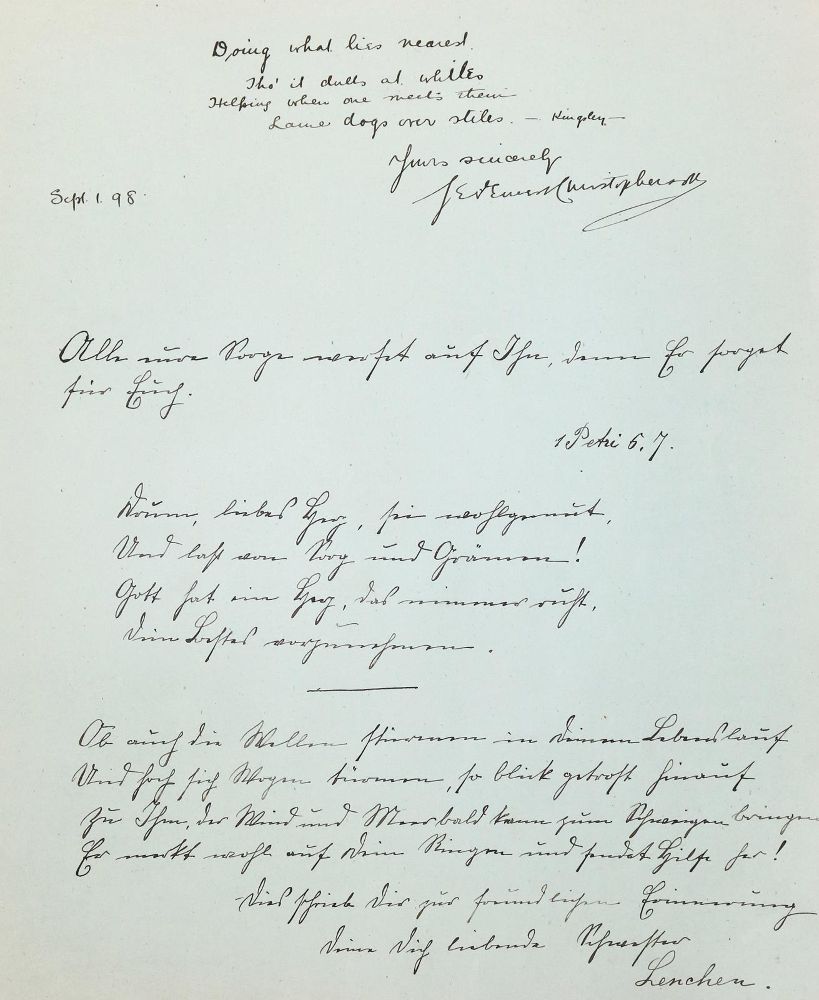 Doing what lies nearest.
Tho' it dulls at whiles
Helping when one meets them
Lame dogs over stiles. — Kingsley —
Yours sincerely
Sept. 1. 98.
Alle eure Sorge werfet auf Ihn, denn Er sorget
für Euch.
1 Petri 5, 7.
Drum, liebes Herz, sei wohlgemut,
Und laß von Sorg und Grämen!
Gott hat ein Herz, das nimmer ruht,
Dein Bestes vorzunehmen.
Ob auch die Wellen stürmen in deinem Lebenslauf
Und hoch sich Wogen türmen, so blick getrost hinauf
Zu Ihm, der Wind und Meer bald kann zum Schweigen bringen
Er merkt wohl auf dein Ringen und sendet Hilfe her!
Dies schrieb Dir zur freundlichen Erinnerung
Deine Dich liebende Schwester
Lenchen.